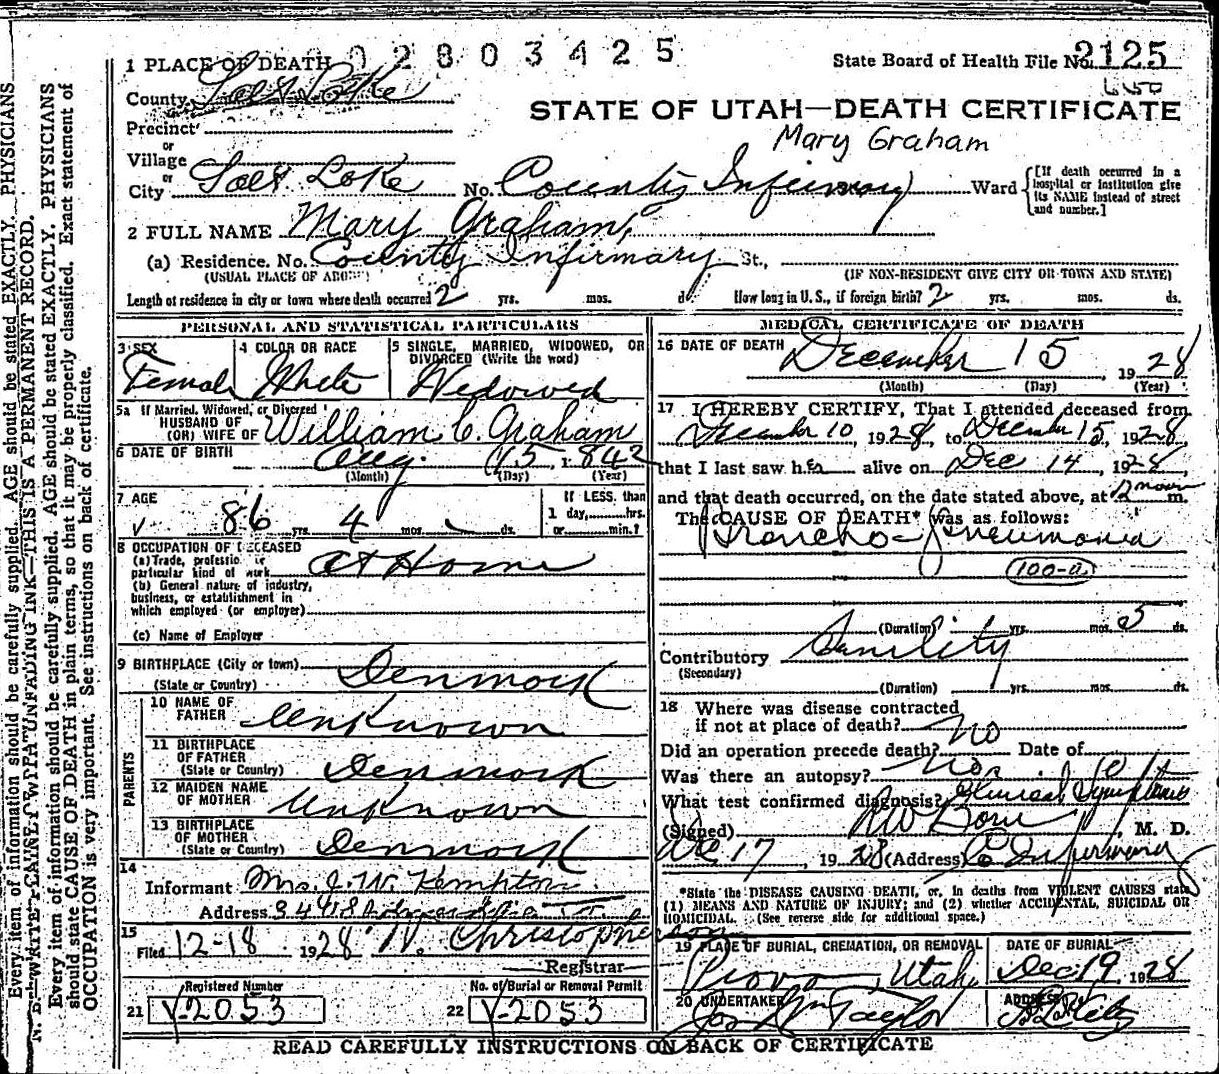 002803425
1 PLACE OF DEATH
State Board of Health File No. 2125
County Salt Lake
STATE OF UTAH—DEATH CERTIFICATE
Precinct
or
Mary Graham
Village
or
City Salt Lake No. County Infirmary Ward
[If death occurred in a hospital or institution give its NAME instead of street and number.]
2 FULL NAME Mary Graham,
(a) Residence. No. County Infirmary St.,
(USUAL PLACE OF ABODE) (IF NON-RESIDENT GIVE CITY OR TOWN AND STATE)
Length of residence in city or town where death occurred 2 yrs. mos. ds. How long in U. S., if foreign birth? 2 yrs. mos. ds.
PERSONAL AND STATISTICAL PARTICULARS
3 SEX 4 COLOR OR RACE 5 SINGLE, MARRIED, WIDOWED, OR DIVORCED (Write the word)
Female White Widowed
5a If Married, Widowed, or Divorced
HUSBAND OF
(OR) WIFE OF William C. Graham
6 DATE OF BIRTH Aug. 15, 1842
(Month) (Day) (Year)
7 AGE If LESS than
86 yrs 4 mos. ds. 1 day, hrs.
or min.?
8 OCCUPATION OF DECEASED
(a) Trade, profession or
particular kind of work At Home
(b) General nature of industry,
business, or establishment in
which employed (or employer)
(c) Name of Employer
9 BIRTHPLACE (City or town)
(State or Country) Denmark
PARENTS
10 NAME OF
FATHER Unknown
11 BIRTHPLACE
OF FATHER
(State or Country) Denmark
12 MAIDEN NAME
OF MOTHER Unknown
13 BIRTHPLACE
OF MOTHER
(State or Country) Denmark
14
Informant Mrs. J. W. Kempton
Address
15
Filed 12-18 1928 N. Christopherson
Registrar
Registered Number No. of Burial or Removal Permit
21 V-2053 22 V-2053
MEDICAL CERTIFICATE OF DEATH
16 DATE OF DEATH December 15 1928
(Month) (Day) (Year)
17 I HEREBY CERTIFY, That I attended deceased from
December 10, 1928, to December 15, 1928,
that I last saw her alive on Dec 14, 1928,
and that death occurred, on the date stated above, at 12 noon m.
The CAUSE OF DEATH* was as follows:
Broncho-Pneumonia
100-a
(Duration) yrs. mos. 5 ds.
Contributory Senility
(Secondary)
(Duration) yrs. mos. ds.
18 Where was disease contracted
if not at place of death? No
Did an operation precede death? No Date of
Was there an autopsy? No
What test confirmed diagnosis? Clinical Symptoms
(Signed) M. D.
Dec 17, 1928 (Address) Co Infirmary
*State the DISEASE CAUSING DEATH, or, in deaths from VIOLENT CAUSES state
(1) MEANS AND NATURE OF INJURY; and (2) whether ACCIDENTAL, SUICIDAL OR
HOMICIDAL. (See reverse side for additional space.)
19 PLACE OF BURIAL, CREMATION, OR REMOVAL DATE OF BURIAL
Provo, Utah, Dec. 19, 1928
20 UNDERTAKER ADDRESS
Jos Wm Taylor S L City
READ CAREFULLY INSTRUCTIONS ON BACK OF CERTIFICATE
N. B.—WRITE PLAINLY WITH UNFADING INK—THIS IS A PERMANENT RECORD.
Every item of information should be carefully supplied. AGE should be stated EXACTLY. PHYSICIANS
should state CAUSE OF DEATH in plain terms, so that it may be properly classified. Exact statement of
OCCUPATION is very important. See instructions on back of certificate.